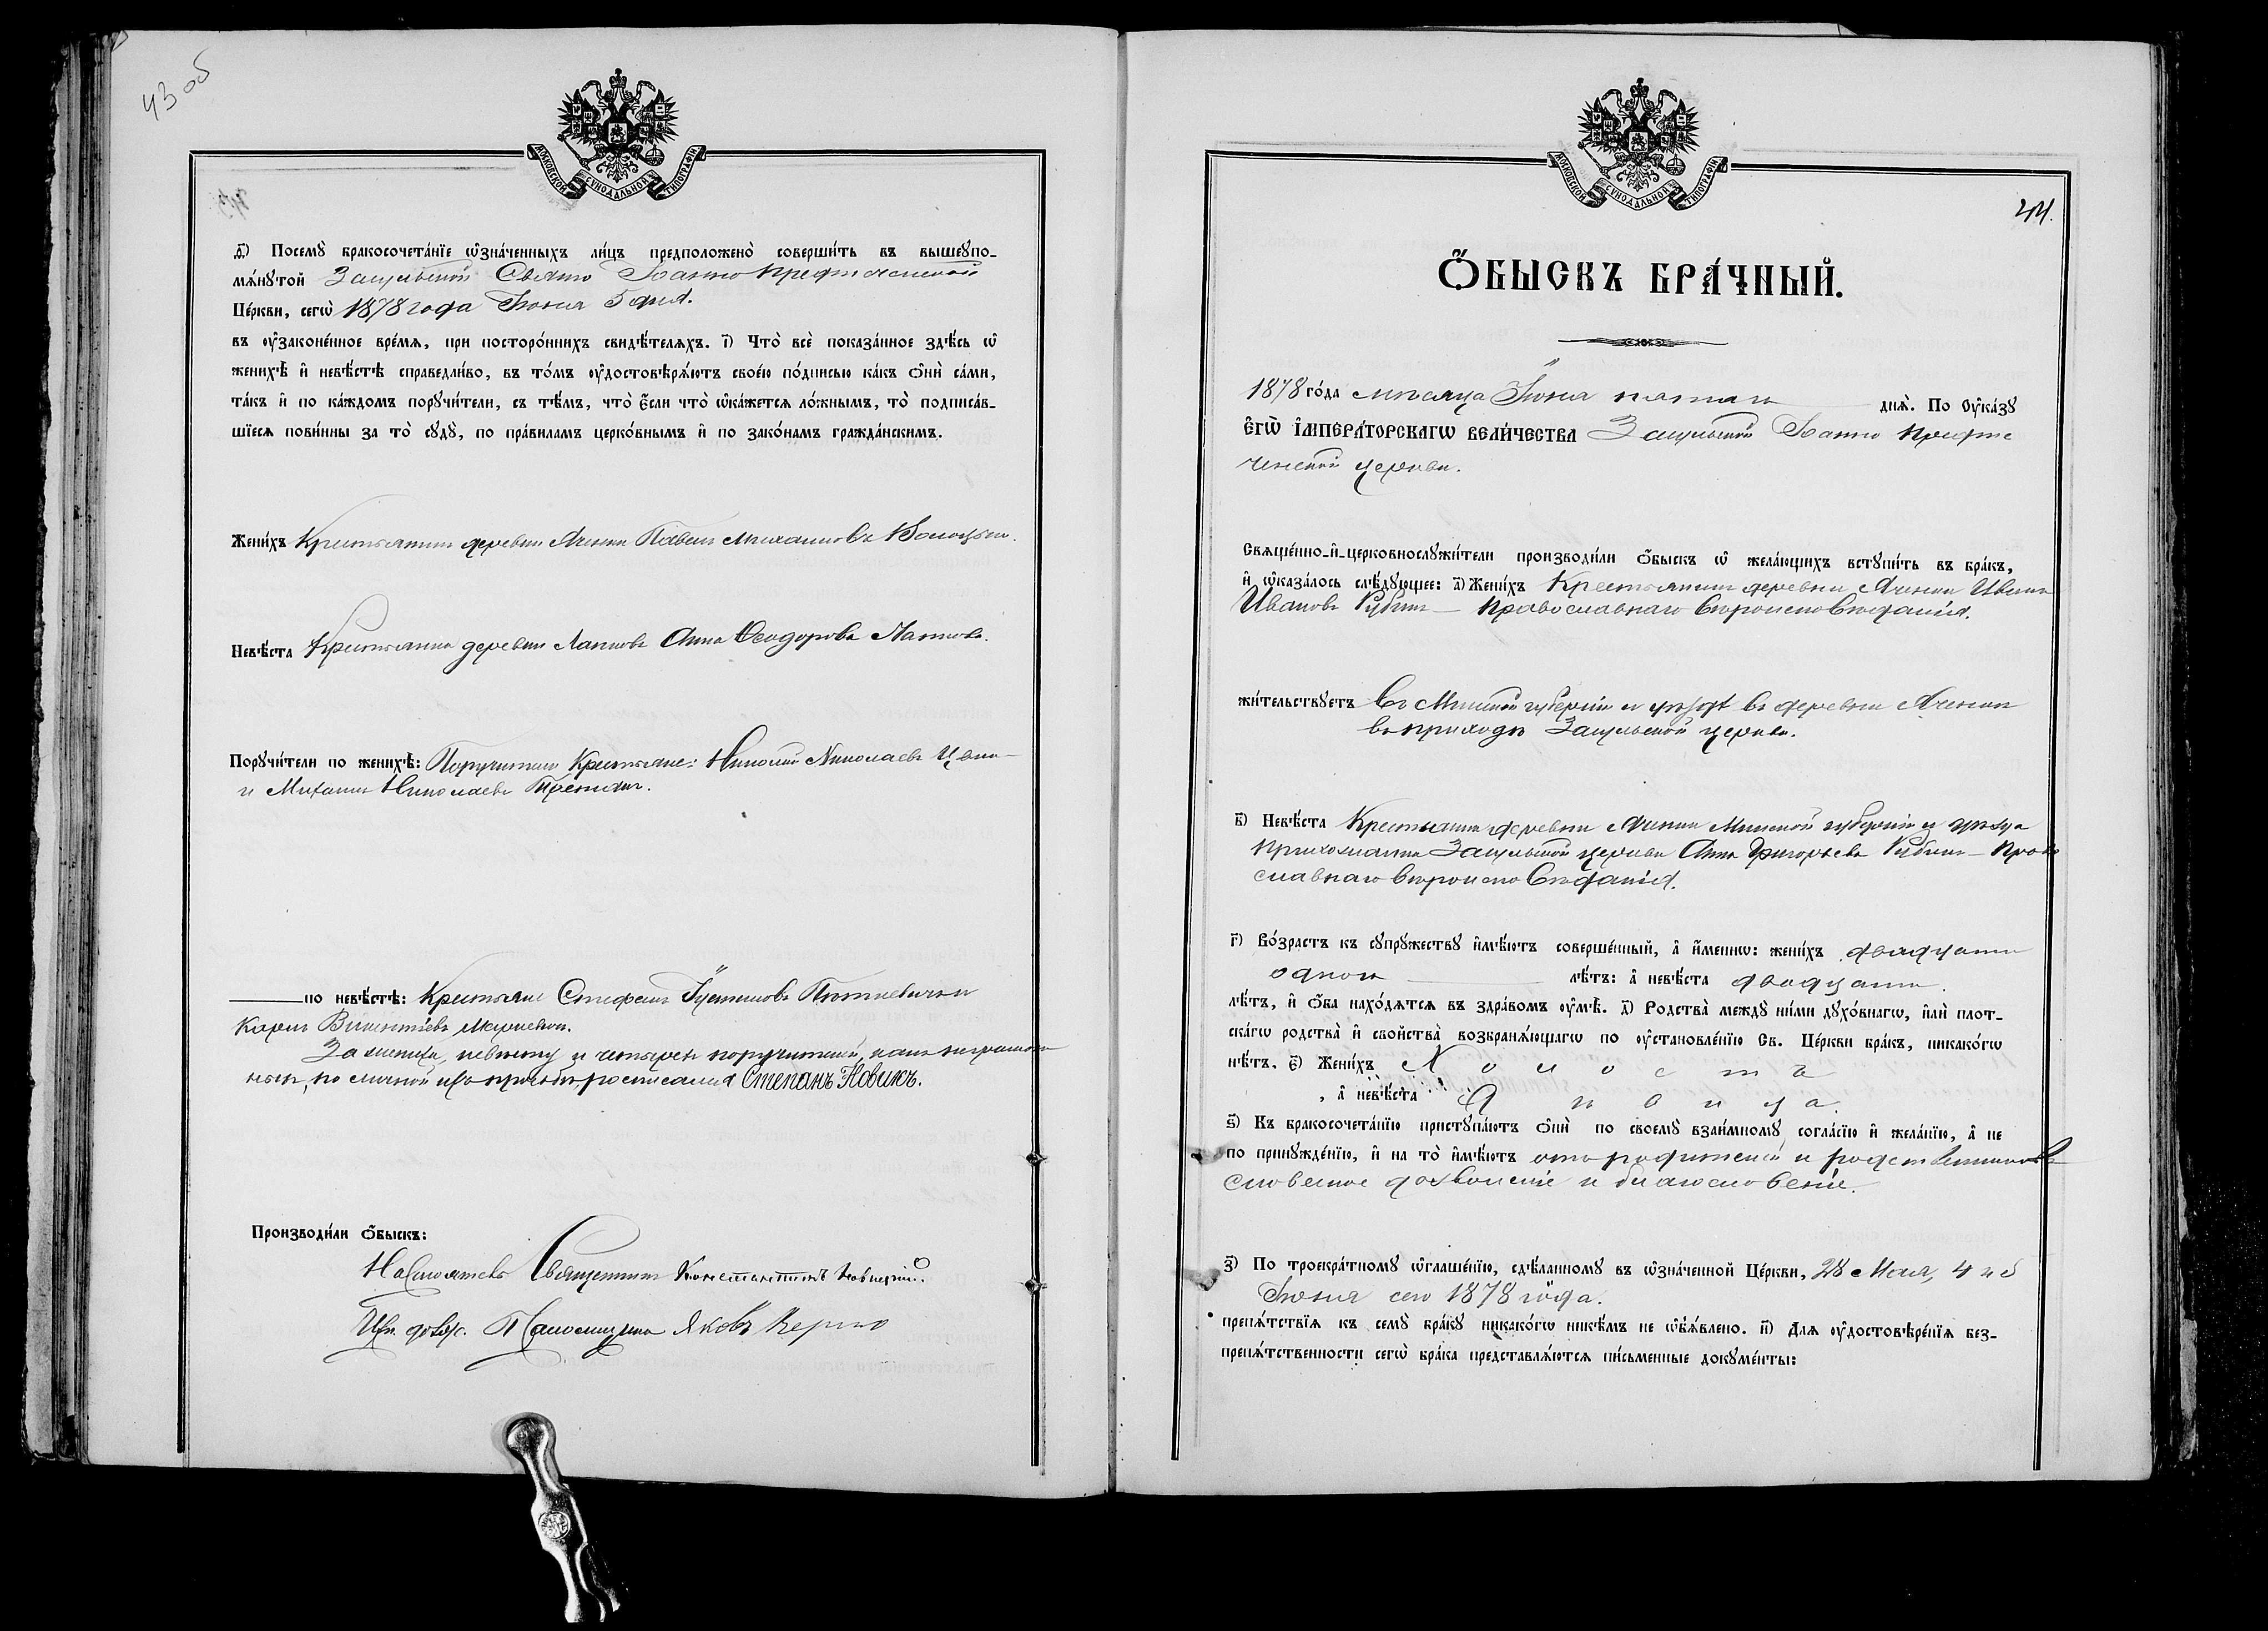 43 об
МОСКОВСКОЙ СѴНОДАЛЬНОЙ ТИПОГРАФІИ
д҃) Посемꙋ̀ бракосочета́нїе ѡ҆зна́ченныхъ ли́цъ предположено̀ соверши́ть въ вышеꙋпо-
мѧ́нꙋтой Зацульской Свято Іоанно Предтеченской
Це́ркви, сегѡ̀ 1878 года Іюня 5 дня.
въ оу҆законе́нное вре́мѧ, при посторо́ннихъ свидѣ́телѧхъ. і҃) Что̀ всѐ показа́нное здѣ́сь ѡ҆
женихѣ̀ и҆ невѣ́стѣ справедли́во, въ то́мъ оу҆достовѣрѧ́ютъ свое́ю по́дписью ка́къ ѻ҆нѝ са́ми,
та́къ и҆ по ка́ждомъ порꙋчи́тели, съ тѣ́мъ, что̀ є҆́сли что̀ ѡ҆ка́жетсѧ ло́жнымъ, то̀ подписа́в-
шїесѧ пови́нны за то̀ сꙋдꙋ̀, по пра́виламъ церко́внымъ и҆ по зако́намъ гражда́нскимъ.
Жени́хъ Крестьянинъ деревни Павелъ Михаиловъ
Невѣ́ста Крестьянка деревни Анна Ѳеодорова
Порꙋчи́тели по женихѣ̀: Поручители Крестьяне: Николай Николаевъ
и Михаилъ Николаевъ
по невѣ́стѣ: Крестьяне Стефанъ Іустиновъ
Карпъ Викентіевъ
За жениха, невѣсту и четырехъ поручителей, какъ неграмот
ныхъ, по личной ихъ просьбѣ, росписался Степанъ Новикъ.
Производи́ли ѻ҆́быскъ:
Настоятель Священникъ Константинъ
Псаломщика Яковъ
МОСКОВСКОЙ СѴНОДАЛЬНОЙ ТИПОГРАФІИ
44.
Ѻ҆́БЫСКЪ БРА́ЧНЫЙ.
1878 го́да мѣсяца Іюня пятаго днѧ̀. По Оу҆ка́зꙋ
Є҆ГѠ̀ І҆МПЕРА́ТОРСКАГѠ ВЕЛИ́ЧЕСТВА Зацульской Іоанно Предте
ченской церкви.
Свѧще́нно-и҆-церковнослꙋжи́тели производи́ли ѻ҆́быскъ ѡ҆ жела́ющихъ встꙋпи́ть въ бра́къ,
и҆ ѡ҆каза́лось слѣ́дꙋющее: а҃) Жени́хъ Крестьянинъ деревни Иванъ
Ивановъ Рубинъ — Православнаго вѣроисповѣданія.
жи́тельствꙋетъ въ Минской губерніи и уѣздѣ въ деревни
въ приходѣ Зацульской церкви.
в҃) Невѣ́ста Крестьянка деревни Минской губерніи и уѣзда
прихожанка Зацульской церкви Анна Григорьева Рубинъ — Право
славнаго вѣроисповѣданія.
г҃) Во́зрастъ къ сꙋпрꙋ́жествꙋ и҆мѣ́ютъ соверше́нный, а҆ и҆́меннѡ: жени́хъ двадцати
одного лѣ́тъ: а҆ невѣ́ста двадцати.
лѣ́тъ, и҆ ѻ҆́ба нахо́дѧтсѧ въ здра́вомъ оу҆мѣ̀. д҃) Родства̀ междꙋ̀ ни́ми дꙋхо́внагѡ, и҆лѝ плот-
ска́гѡ родства̀ и҆ сво́йства̀ возбранѧ́ющагѡ по оу҆становле́нїю Св. Це́ркви бра́къ, никако́гѡ
нѣ́тъ. є҃) Жени́хъ Холостъ
, а҆ невѣ́ста Дѣвица.
ѕ҃) Къ бракосочета́нїю пристꙋпа́ютъ ѻ҆нѝ по своемꙋ̀ взаи́мномꙋ согла́сїю и҆ жела́нїю, а҆ не
по принꙋжде́нїю, и҆ на то̀ и҆мѣ́ютъ отъ родителей и родственниковъ
словесное дозволеніе и благословеніе.
з҃) По троекра́тномꙋ ѡ҆глаше́нїю, сдѣ́ланномꙋ въ ѡ҆зна́ченной Це́ркви, 28 Мая, 4 и 5
Іюня сего 1878 года.
препѧ́тствїѧ къ семꙋ̀ бра́кꙋ никако́гѡ никѣ́мъ не ѡ҆б̾ѧ́влено. и҃) Длѧ оу҆достовѣре́нїѧ без-
препѧ́тственности сегѡ̀ бра́ка представлѧ́ютсѧ пи́сьменные докꙋме́нты: